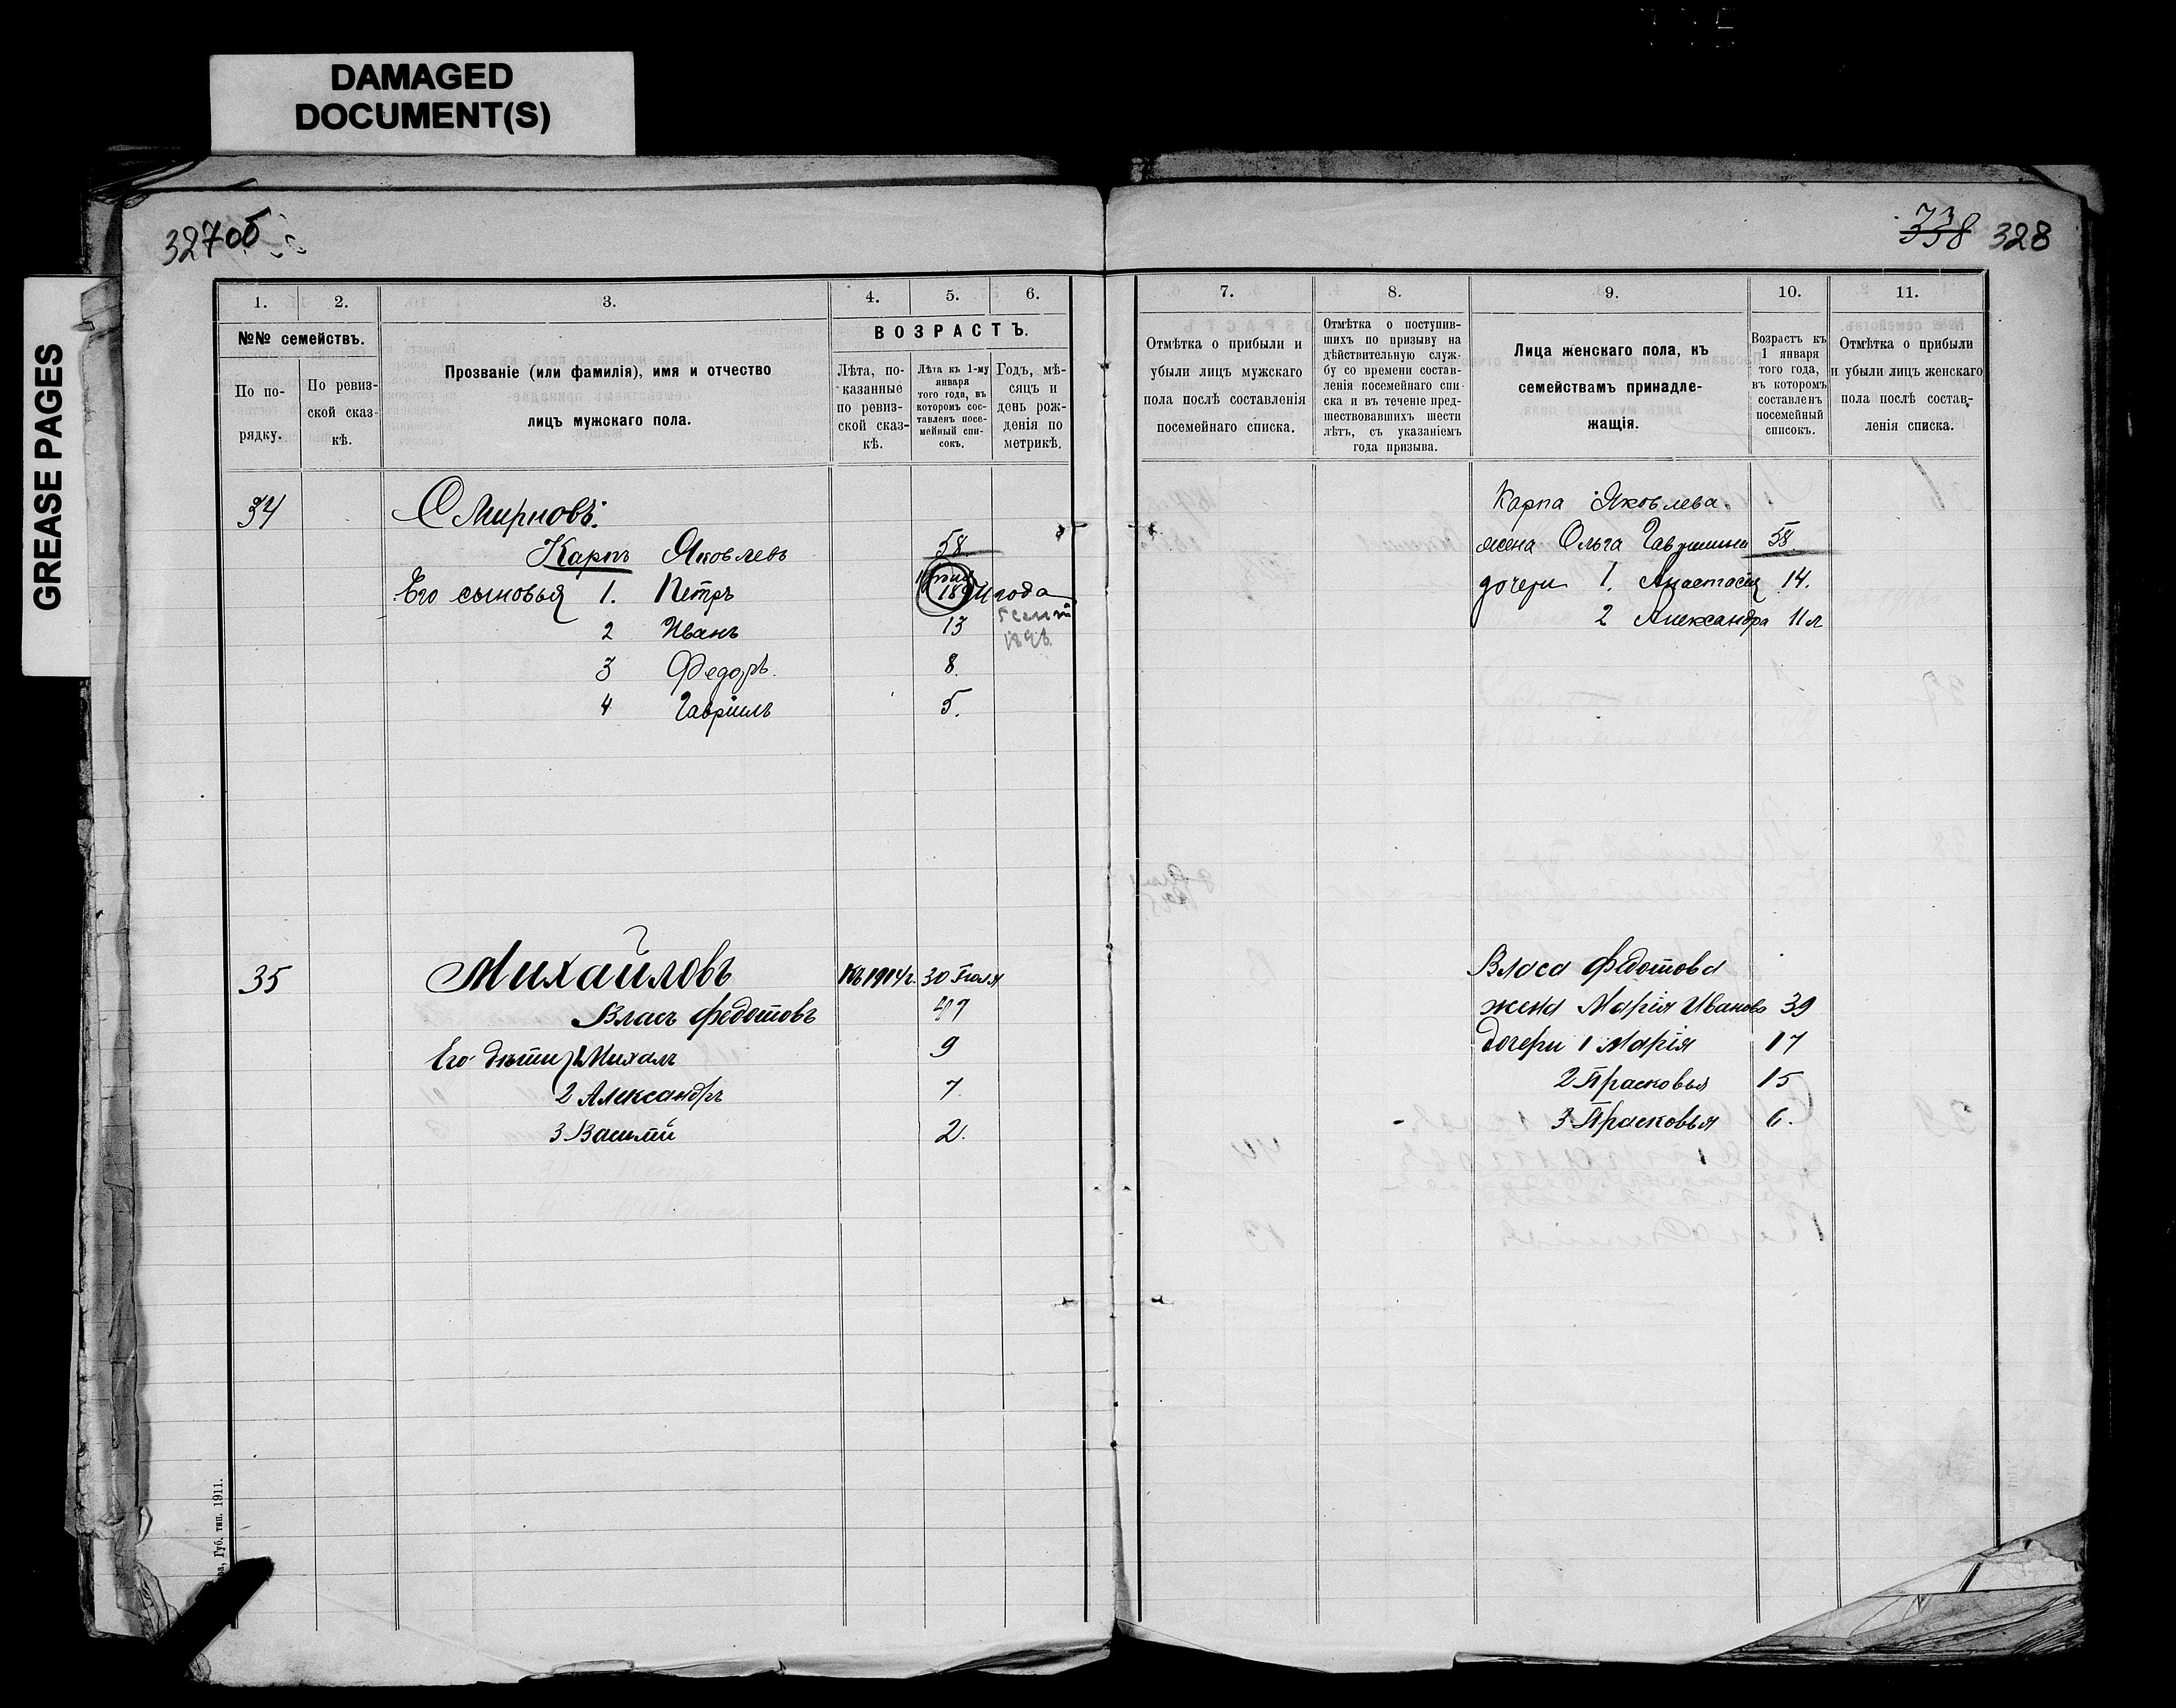 DAMAGED
DOCUMENT(S)
GREASE PAGES
327об
338 328
1.
2.
3.
4.
5.
6.
№№ семействъ.
По по-
рядку.
По ревиз-
ской сказ-
кѣ.
Прозваніе (или фамилія), имя и отчество
лицъ мужскаго пола.
ВОЗРАСТЪ.
Лѣта, по-
казанные
по ревиз-
ской сказ-
кѣ.
Лѣта къ 1-му
января
того года, въ
которомъ сос-
тавленъ посе-
мейный спи-
сокъ.
Годъ, мѣ-
сяцъ и
день рож-
денія по
метрикѣ.
34
Смирновъ.
Карпъ Яковлевъ 58
Его сыновья 1. Петръ года
2 Иванъ 13
3 Федоръ. 8.
4 Гавріилъ 5.
35
Михайловъ Къ 1914 г. 30
Власъ Федотовъ 47
Его дѣти 1 Михаилъ 9
2 Александръ 7.
3 Василій 2.
Губ. тип. 1911.
7.
8.
9.
10.
11.
Отмѣтка о прибыли и
убыли лицъ мужскаго
пола послѣ составленія
посемейнаго списка.
Отмѣтка о поступив-
шихъ по призыву на
дѣйствительную служ-
бу со времени состав-
ленія посемейнаго спи-
ска и въ теченіе пред-
шествовавшихъ шести
лѣтъ, съ указаніемъ
года призыва.
Лица женскаго пола, къ
семействамъ принадле-
жащія.
Возрастъ къ
1 января
того года,
въ которомъ
составленъ
посемейный
списокъ.
Отмѣтка о прибыли
и убыли лицъ женскаго
пола послѣ состав-
ленія списка.
Карпа Яковлева.
жена Ольга 58
дочери 1. Анастасія 14.
2 Александра 11 л
Власа Федотова
жена Марія Иванова 39
дочери 1 Марія 17
2 Прасковья 15
3 Прасковья 6.